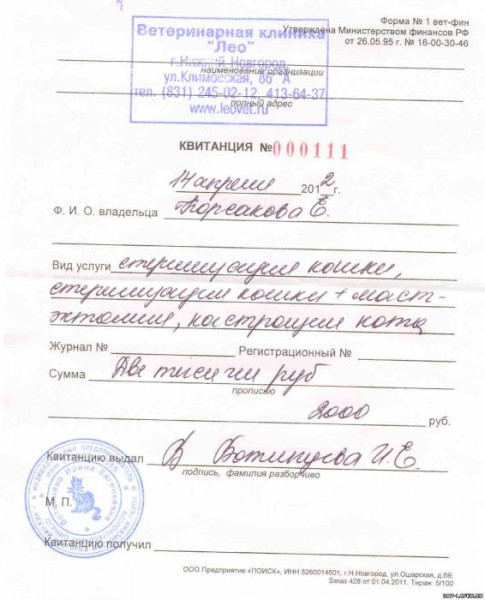 Форма № 1 вет-фин
Утверждена Министерством финансов РФ
от 26.05.95 г. № 16-00-30-46
Ветеринарная клиника
"Лео"
г.Нижний Новгород,
наименование организации
ул.Климовская, 86 А
тел. (831) 245-02-12, 413-64-37
полный адрес
www.leovet.ru
КВИТАНЦИЯ № 000111
14 апреля 2012 г.
Ф. И. О. владельца Торсакова Е.
Вид услуги стерилизация кошки,
стерилизация кошки + маст-
эктомия, кастрация кота
Журнал № Регистрационный №
Сумма Две тысячи руб
прописью
2000 руб.
Квитанцию выдал И.Е.
подпись, фамилия разборчиво
М. П.
Квитанцию получил
ООО Предприятие «ПОИСК», ИНН 5260014601, г.Н.Новгород, ул.Ошарская, д.69;
Заказ 428 от 01.04.2011. Тираж 5/100